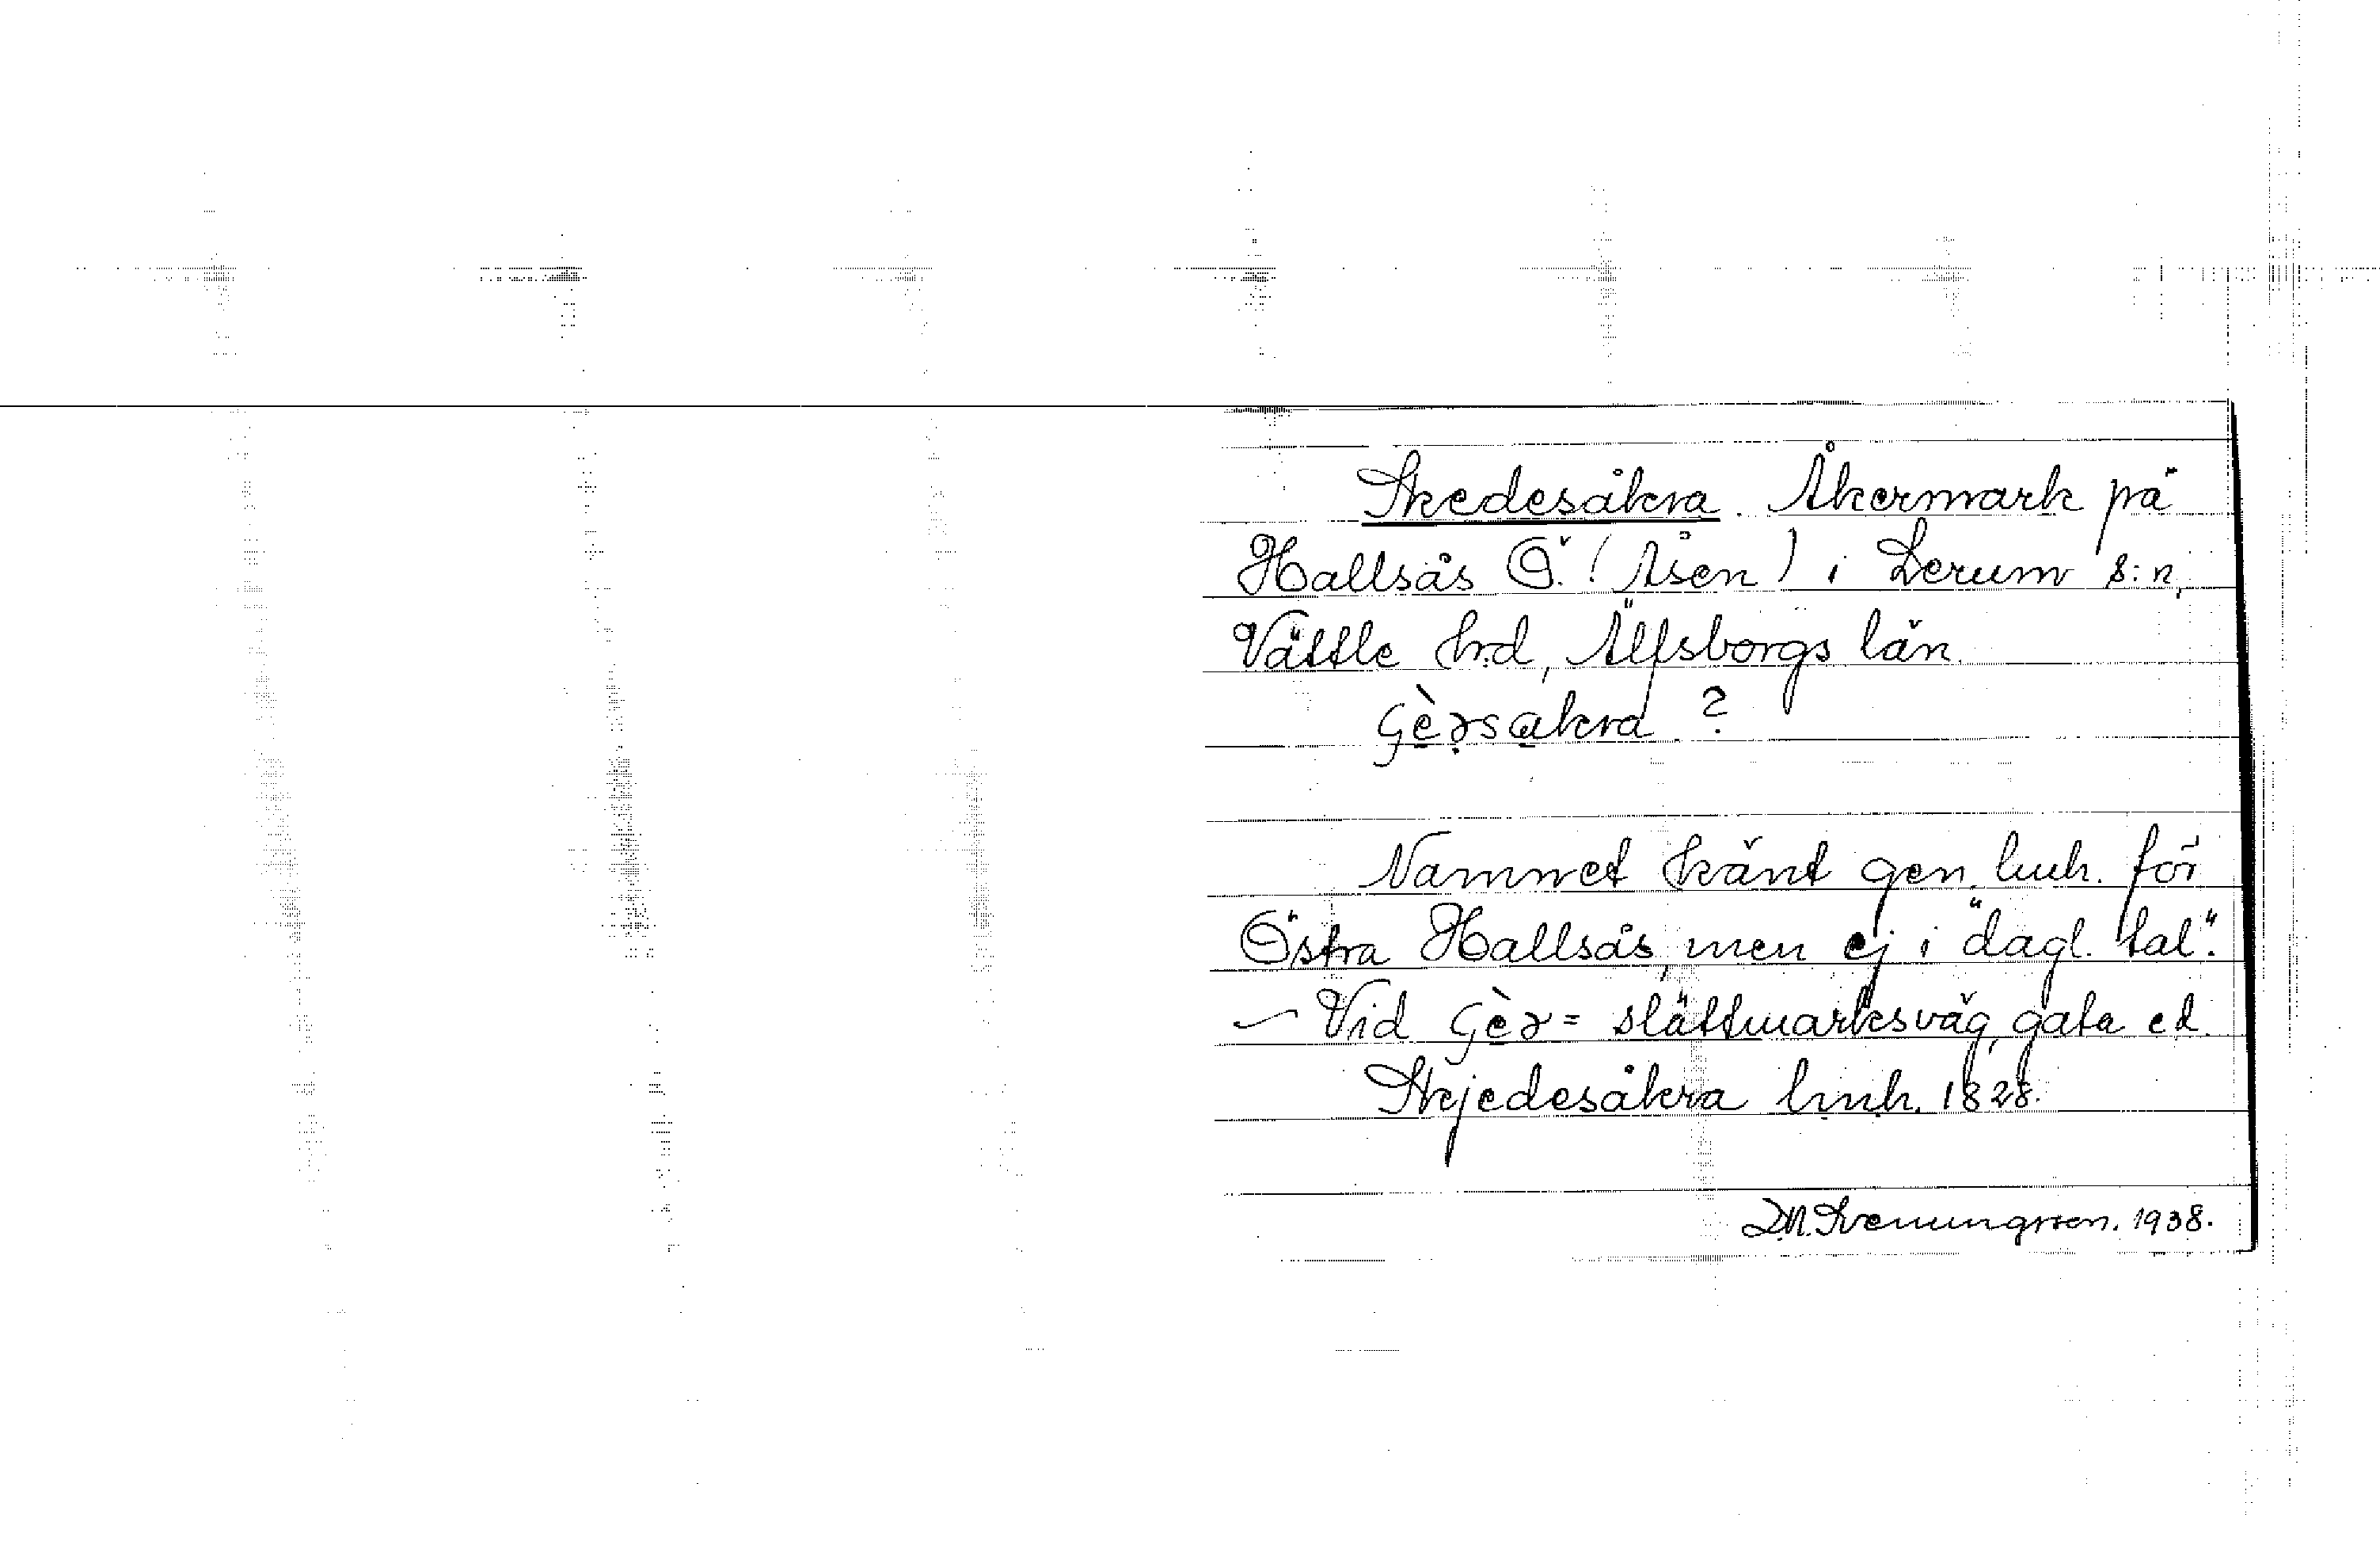 Skedesåkra. Åkermark på
Hallsås Ö. (Åsen) i Lerum s:n,
Vättle hrd, Älfsborgs län.
Çèrsakra ?
Namnet känt gen. lmh. för
Östra Hallsås, men ej i "dagl. tal".
– Vid Çèr = slättmarksväg, gata ed.
Skjedesåkra lmh. 1828.
1938.